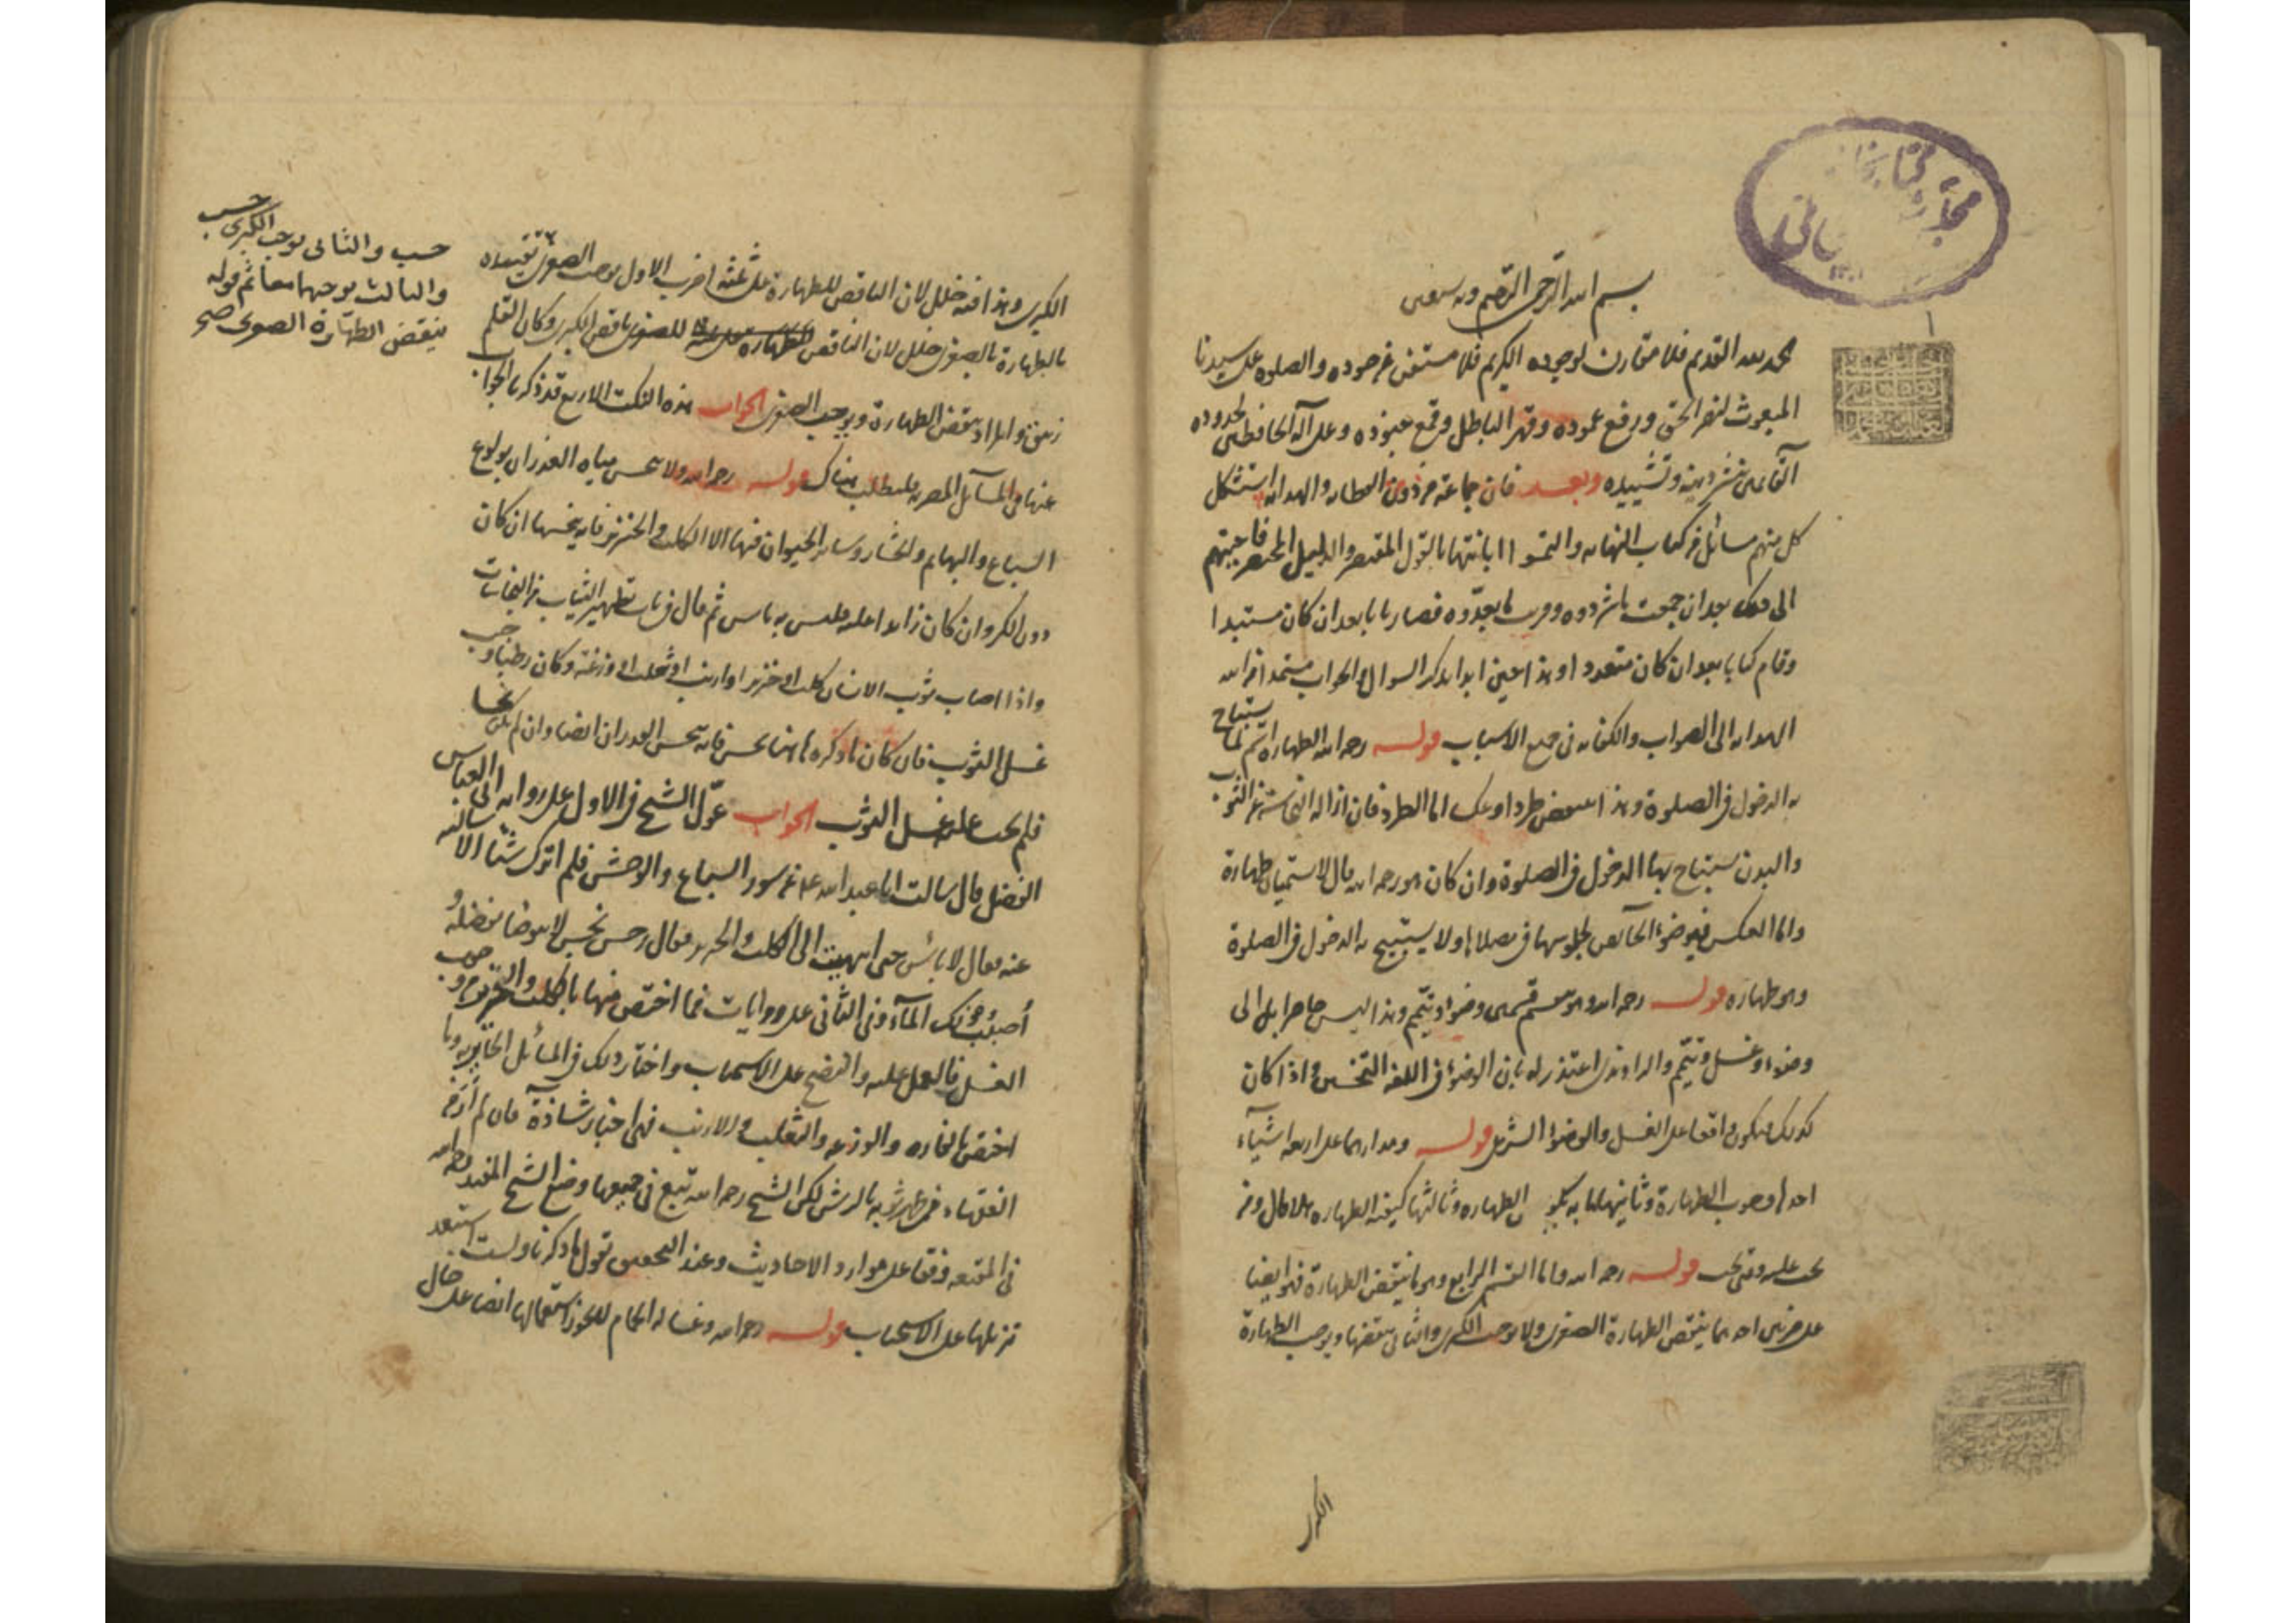 بسم الله الرحمن الرحيم وبه نستعين
نحمد الله القديم فلا مقارن لوجوده الكريم فلا مستغنى عن جوده والصلوة على سيدنا
المبعوث لنصر الحق ورفع عموده وقهر الباطل وقمع جنوده وعلى آله الحافظين لحدوده
القائمين بنشر دينه وتشييده وبعد فان جماعة من ذوى الفطانه والهدايه استشكل
كل منهم مسائل من كتاب النهايه والتمسوا ابانتها بالقول المقتصر والدليل المختصر فاجبتهم
الى ذلك بعد ان جمعت ما شردوه وقربت ما بعدوه فصار بابا بعد ان كان مستبدا
وقام كتابا بعد ان كان متعددا وهذا حين ابدا بذكر السوال والجواب مستمدا من الله
الهدايه الى الصواب والكفايه فى جميع الاسباب قوله رحمه الله الطهارة اسم لما يستباح
به الدخول فى الصلوة وهذا ينتقض طردا وعكسا اما الطرد فان ازالة النجاسة عن الثوب
والبدن يستباح بها الدخول فى الصلوة وان كان هو رحمه الله قال لا تسميان طهارة
واما العكس فوضوء الحائض لجلوسها فى مصلاها ولا يستبيح به الدخول فى الصلوة
وهو طهاره قوله رحمه الله وهو ينقسم قسمين وضوء وتيمم وهذا ليس حاصرا بل الى
وضوء وغسل وتيمم والراوندى اعتذر له بان الوضوء فى اللغة التحسين واذا كان
كذلك فيكون واقعا على الغسل والوضوء الشرعى قوله ومدارهما على اربعة اشياء
احدها وجوب الطهارة وثانيها ما به تكون الطهاره وثالثها كيفية الطهاره قال ومن
تجب عليه ومتى تجب قوله رحمه الله واما القسم الرابع وهو ما ينقض الطهارة فهو ايضا
على ضربين احدهما ينقض الطهارة الصغرى ولا يوجب الكبرى والثانى ينقضها ويوجب الطهارة
الكبرى
الكبرى وهذا فيه خلل لان الناقض للطهارة على ثلثة اضرب الاول يوجب الصغرى تقييده
بالطهارة بالصغرى خلل لان الناقض للصغرى ناقض الكبرى وكان القلم
زيغ والمراد ينقض الطهارة ويوجب الصغرى الجواب هذه النكت الاربع قد ذكرنا الجواب
عنها فى المسآئل المصريه فليطلب هناك قوله رحمه الله ولا ينجس مياه الغدران بولوغ
السباع والبهايم والحشار وساير الحيوان فيها الا الكلب والخنزير فانه ينجسها ان كان
دون الكر وان كان زايدا عليه فليس به باس ثم قال فى باب تطهير الثياب من النجاسات
واذا اصاب ثوب الانسان كلب او خنزير او ارنب او ثعلب او وزغة وكان رطبا وجب
غسل الثوب فان كان ما ذكره هاهنا نجس فانه ينجس الغدران ايضا وان لم يكن نجسا
فلم يجب عليه غسل الثوب الجواب عول الشيخ فى الاول على رواية ابى العباس
الفضل قال سالت ابا عبد الله عن سور السباع والوحش فلم اترك شيئا الا سالته
عنه فقال لا باس حتى انتهيت الى الكلب والخنزير فقال رجس نجس لا يتوضا بفضله و
اصبب ذلك المآء وفى الثانى على روايات فما اختص منها بالكلب والخنزير وجب
الغسل فالعمل عليه والنضح على الاستحباب واختار ذلك فى المسائل الحائريه وما
اختص بالفاره والوزغه والثعلب والارنب فهى اخبار شاذة فان لم ار من
الفقهاء من طهر ثوبه بالرش لكن الشيخ رحمه الله تبع فى جميعها وضع الشيخ المفيد رحمه الله
فى المقنعه وفقا على موارد الاحاديث وعند التحقيق نقول ما ذكرنا ولست استبعد
تنزيلها على الاستحباب قوله رحمه الله وغسالة الحمام لا يجوز استعمالها ايضا على حال
حسب
حسب والثانى يوجب الكبرى
والثالث يوجبهما معا ثم قوله
ينقض الطهارة الصغرى صح